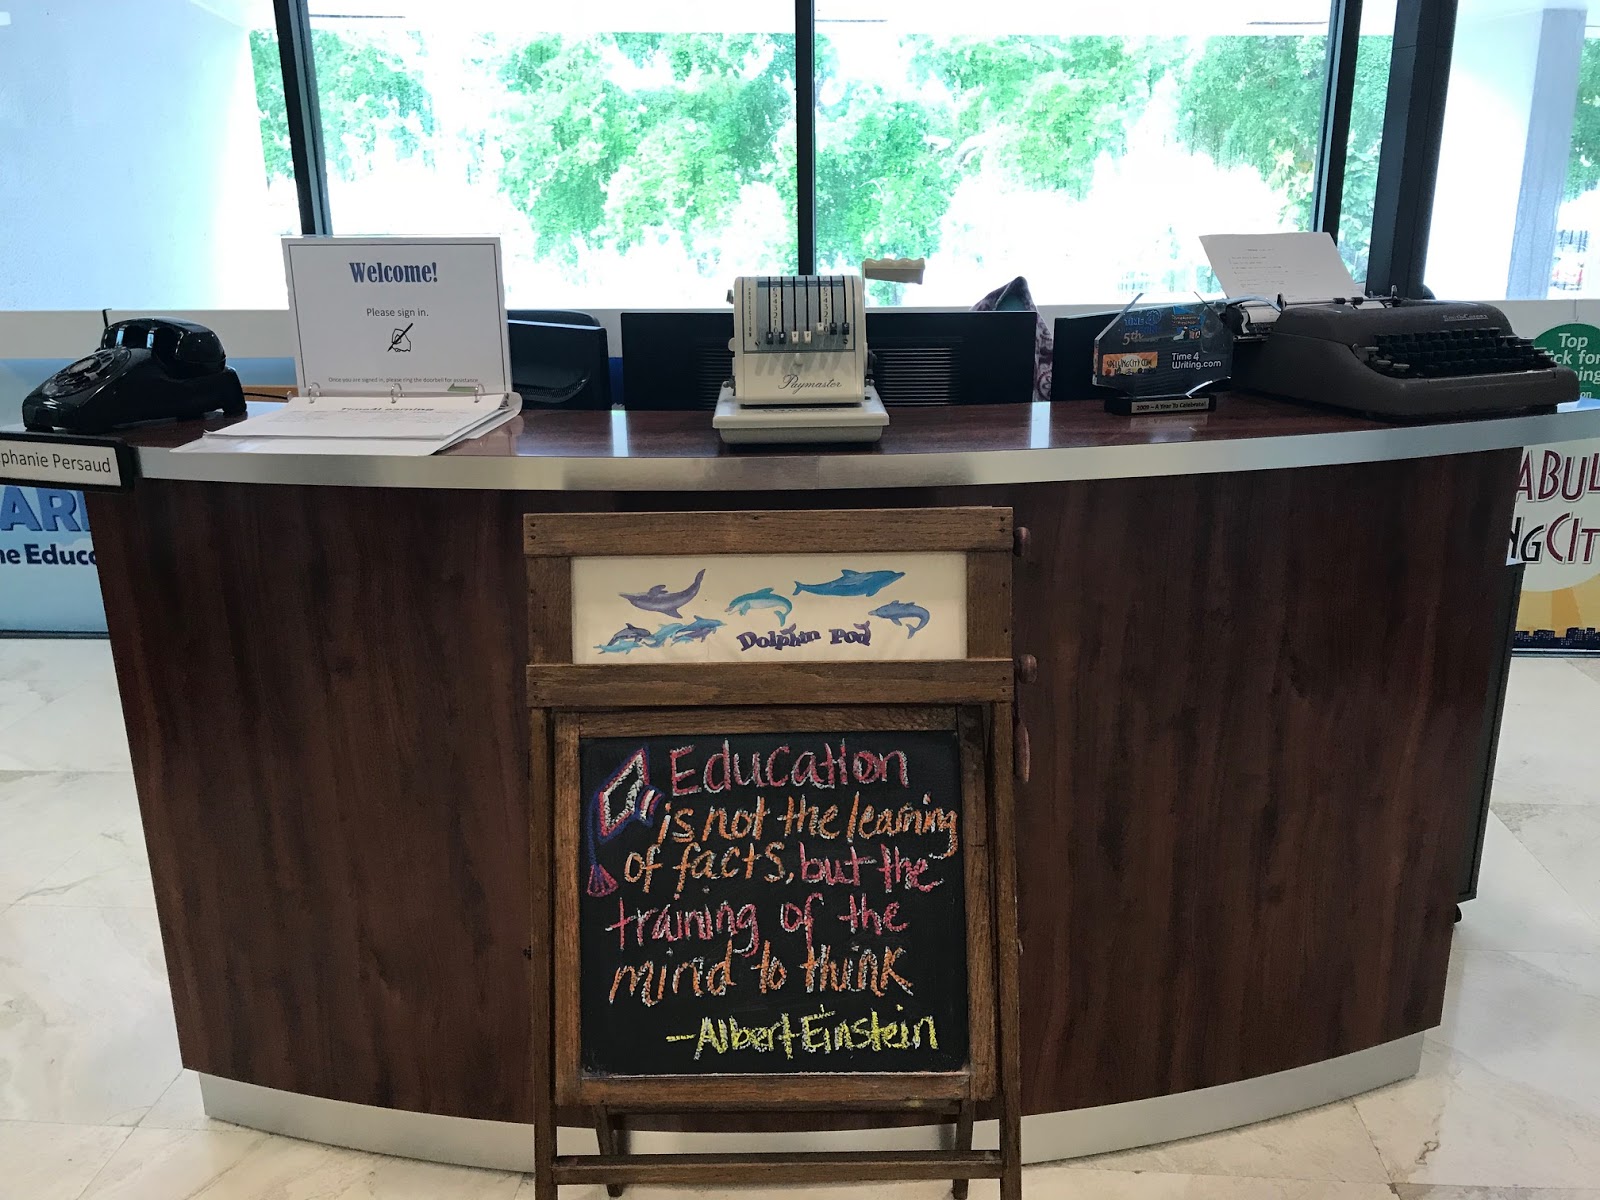 Welcome!
Please sign in.
Once you are signed in, please ring the doorbell for assistance.
Time4Learning
Paymaster
5th
Time 4
Writing.com
2009 – A Year To Celebrate!
Top
phanie Persaud
ARN
ne Educ
ABUL
NGCIT
Dolphin Pod
Education
is not the learning
of facts, but the
training of the
mind to think
-Albert Einstein